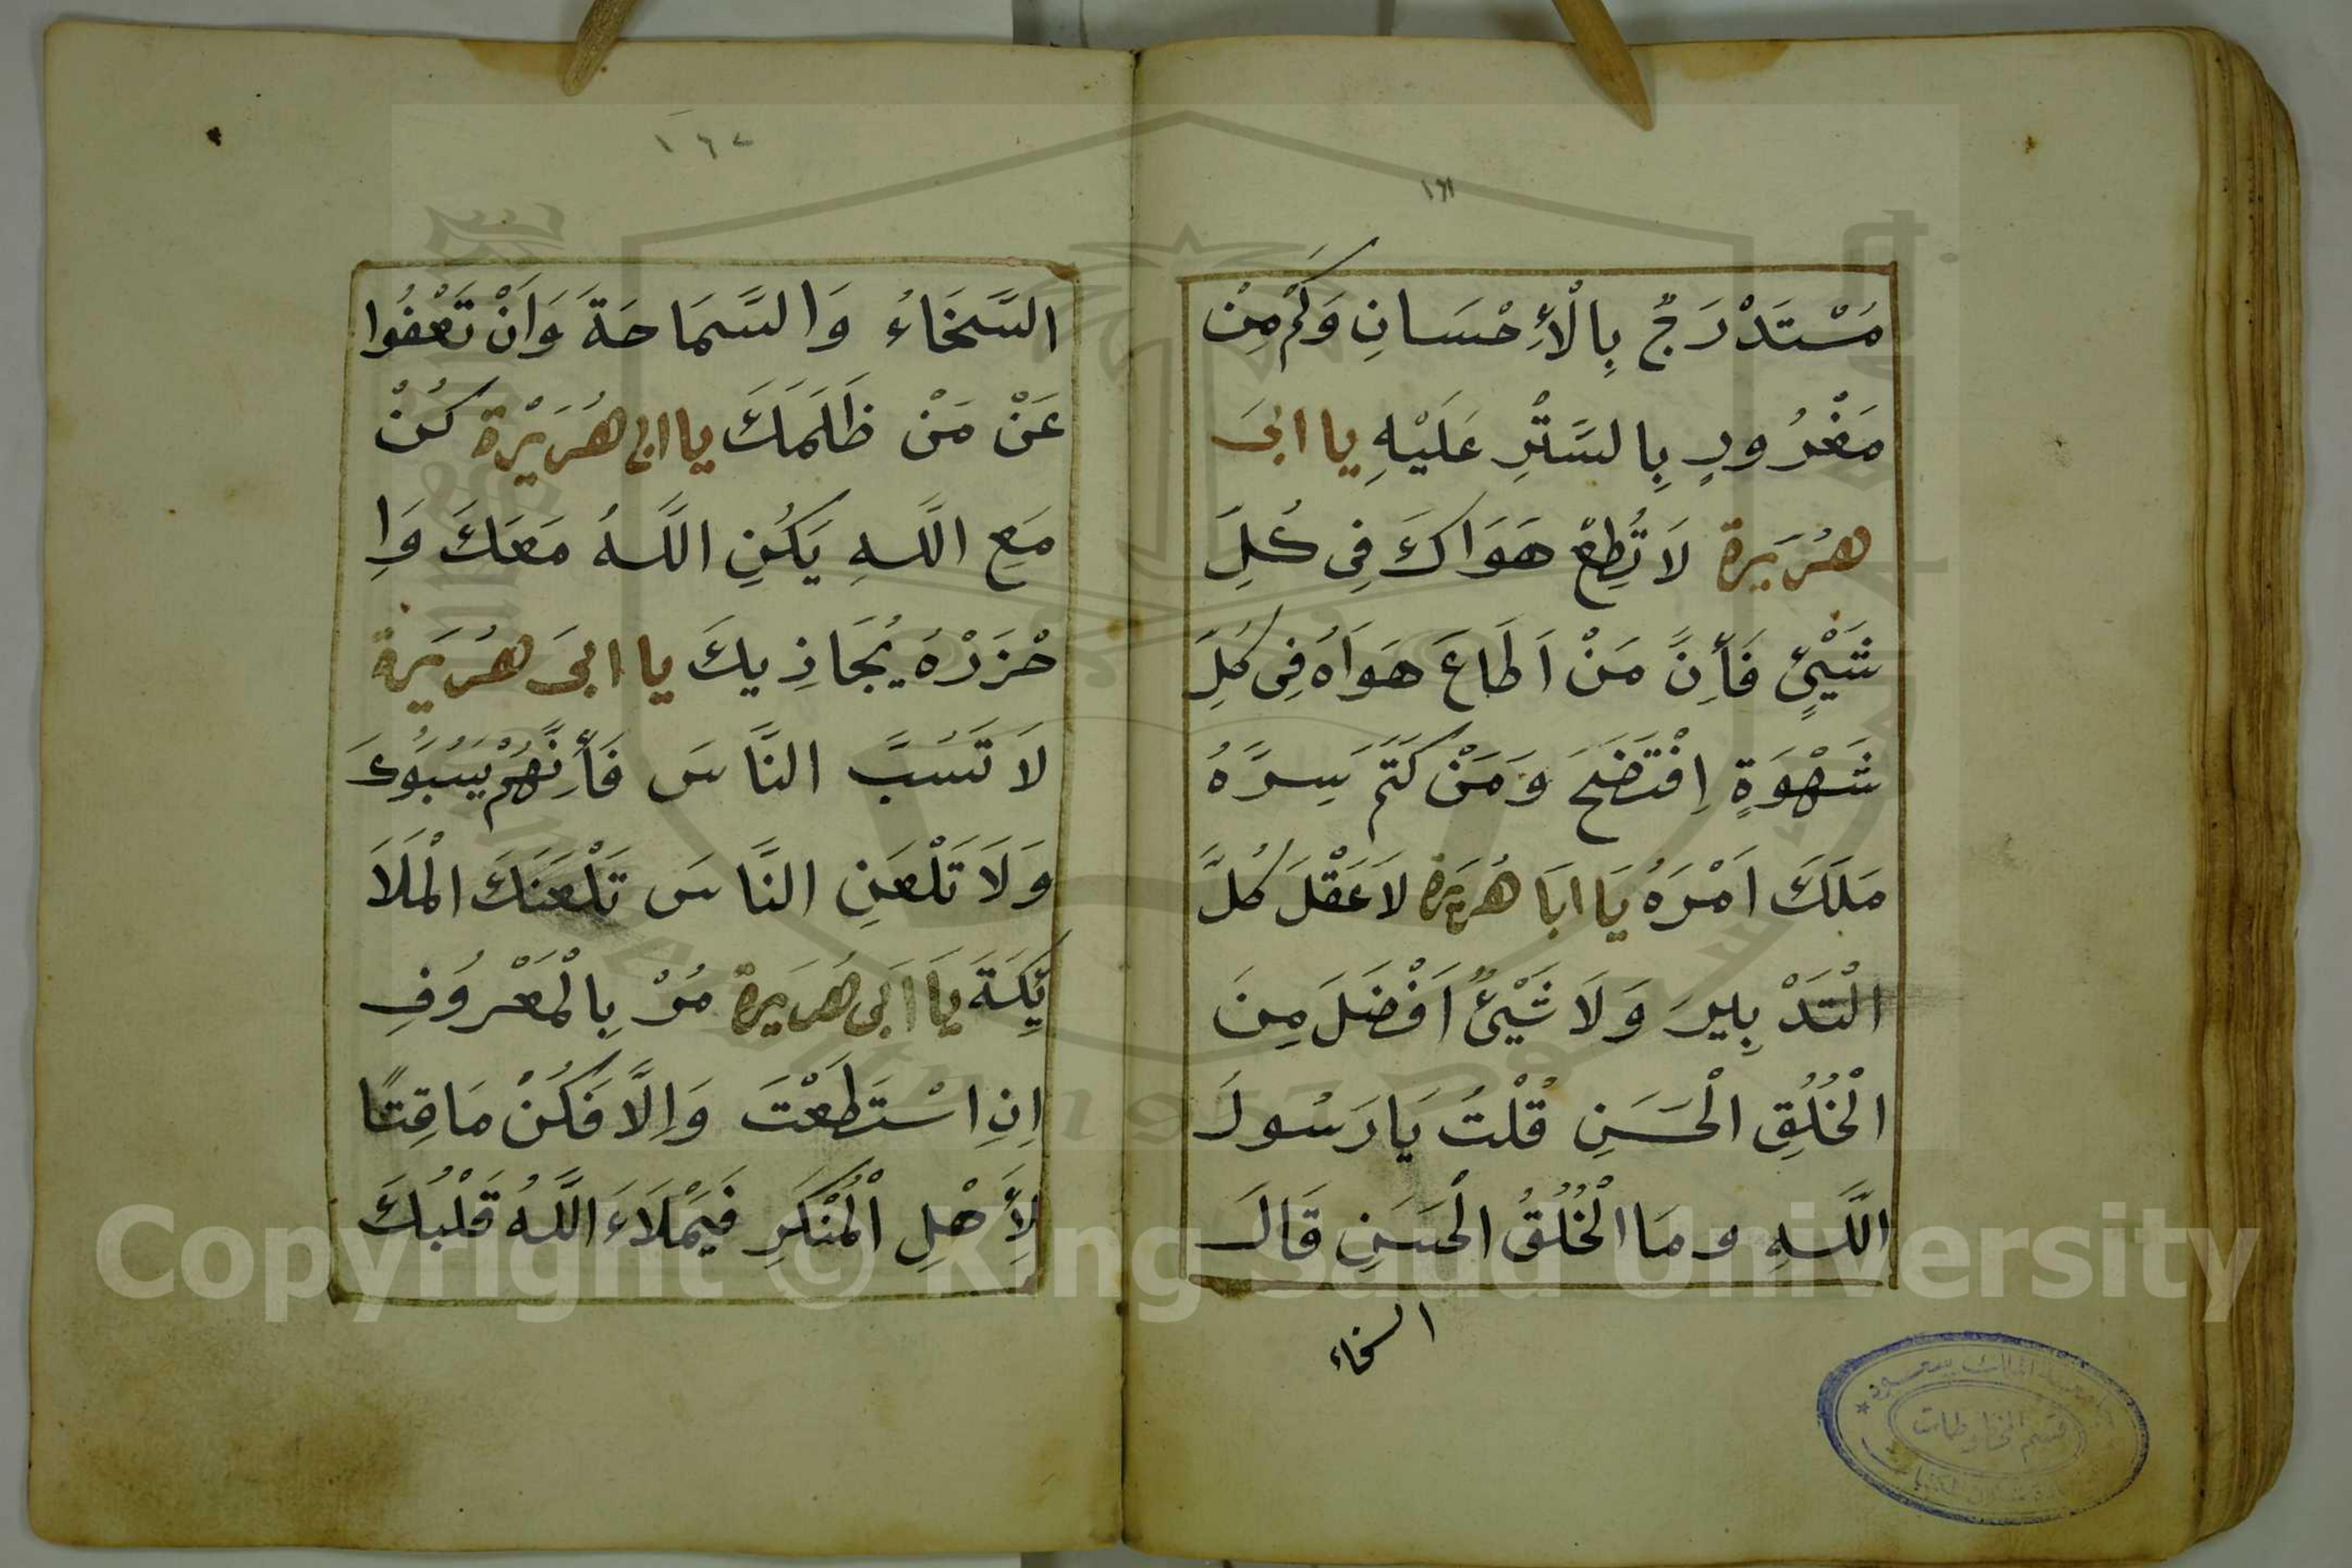 ١٦١
مُسْتَدْرَجٌ بِالْأِحْسَانِ وَكَمْ مِنْ
مَغْرُورٍ بِالسَّتْرِ عَلَيْهِ يا ابىَ
هُرَيَرة لَا تُطِعْ هَوَاكَ فِى كُلِّ
شَيْئٍ فَأِنَّ مَنْ اَطَاعَ هَوَاهُ فِى كُلِّ
شَهْوَةٍ اِفْتَضَحَ وَمَنْ كَتَمَ سِرَّهُ
مَلَكَ اَمْرَهُ يَا ابَا هُرَيَرة لَا عَقْلَ كُلَّ
الْتَدْبِيرَ وَلَا شَيْئٌ اَفْضَلَ مِنَ
الْخُلُقِ الْحَسَنِ قُلْتُ يَا رَسُولَ
اللَّهِ ومَا الْخُلُقُ الْحَسَنِ قَالَ
السخاء
١٦٢
السَّخَاءُ وَالسَّمَاحَةَ وَاَنْ تَعْفُوا
عَنْ مَنْ ظَلَمَكَ يا ابى هُرَيْرة كُنْ
مَعِ اللَّهِ يَكُنِ اللَّهُ مَعَكَ وَاِ
حْزَرْهُ يُجَاذِيكَ يا ابىَ هُرَيَرة
لَا تَسُبَّ النَّاسَ فَأِنَّهُمْ يَسُبُّوكَ
وَلَا تَلْعَنِ النَّاسَ تَلْعَنَكَ الْمَلَا
ئِكَةَ يَا اَبَى هُرَيَرة مُرْ بِالْمَعْرُوفِ
اِنِ اسْتَطَعْتَ وَاِلَّا فَكُنْ مَاقِتًا
لِأَهْلِ الْمُنْكَرِ فَيَمْلَاءَ اللَّهُ قَلْبُكَ
قسم المخطوطات
Copyright © King Saud University